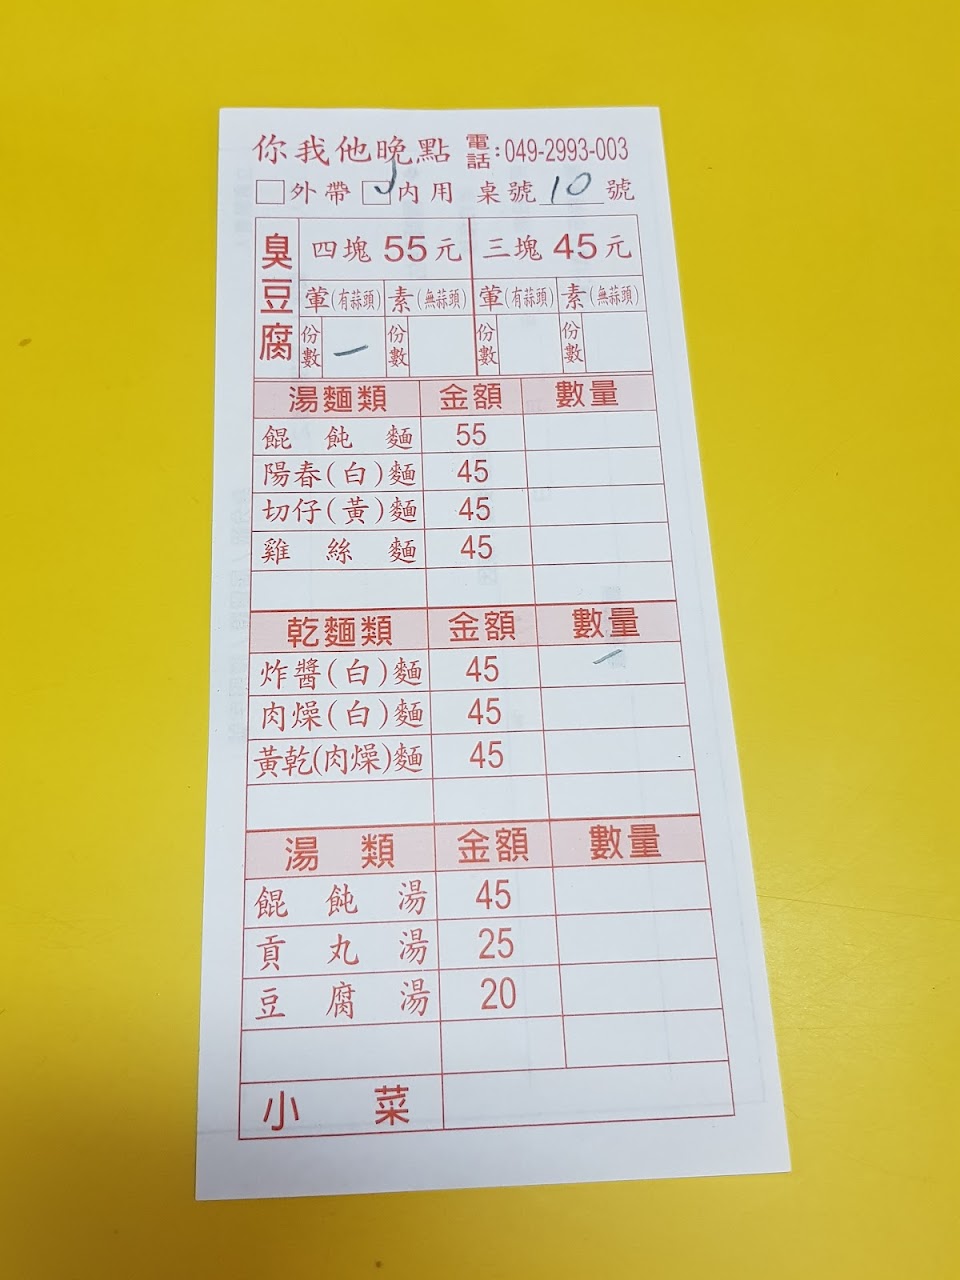 你我他晚點 電話:049-2993-003
外帶 內用 桌號10號
臭豆腐 四塊 55元 三塊 45元
葷(有蒜頭) 素(無蒜頭) 葷(有蒜頭) 素(無蒜頭)
份數 一 份數 份數 份數
湯麵類 金額 數量
餛飩麵 55
陽春(白)麵 45
切仔(黃)麵 45
雞絲麵 45
乾麵類 金額 數量
炸醬(白)麵 45 一
肉燥(白)麵 45
黃乾(肉燥)麵 45
湯類 金額 數量
餛飩湯 45
貢丸湯 25
豆腐湯 20
小菜